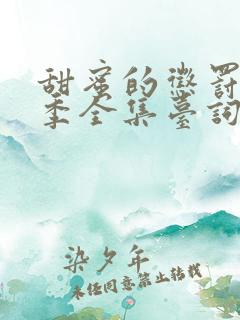 甜蜜的懲罰
季全集臺詞
染夕年
未经同意禁止转载